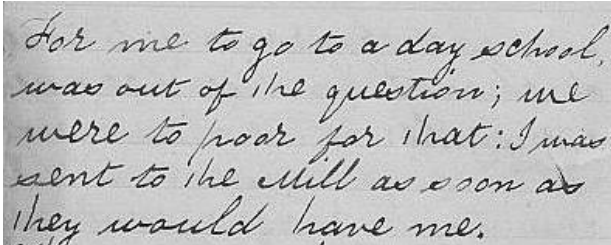 For me to go to a day school,
was out of the question; we
were to poor for that: I was
sent to the Mill as soon as
they would have me.